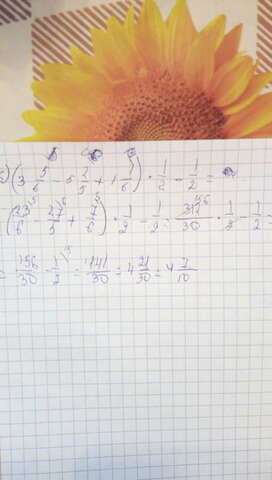 (3 5/6 - 5 2/5 + 1 1/6) · 1/2 - 1/2 =
(23/6 - 27/5 + 7/6) · 1/2 - 1/2 = 312/30 · 1/2 - 1/2
= 156/30 - 1/2 = 141/30 = 4 21/30 = 4 7/10